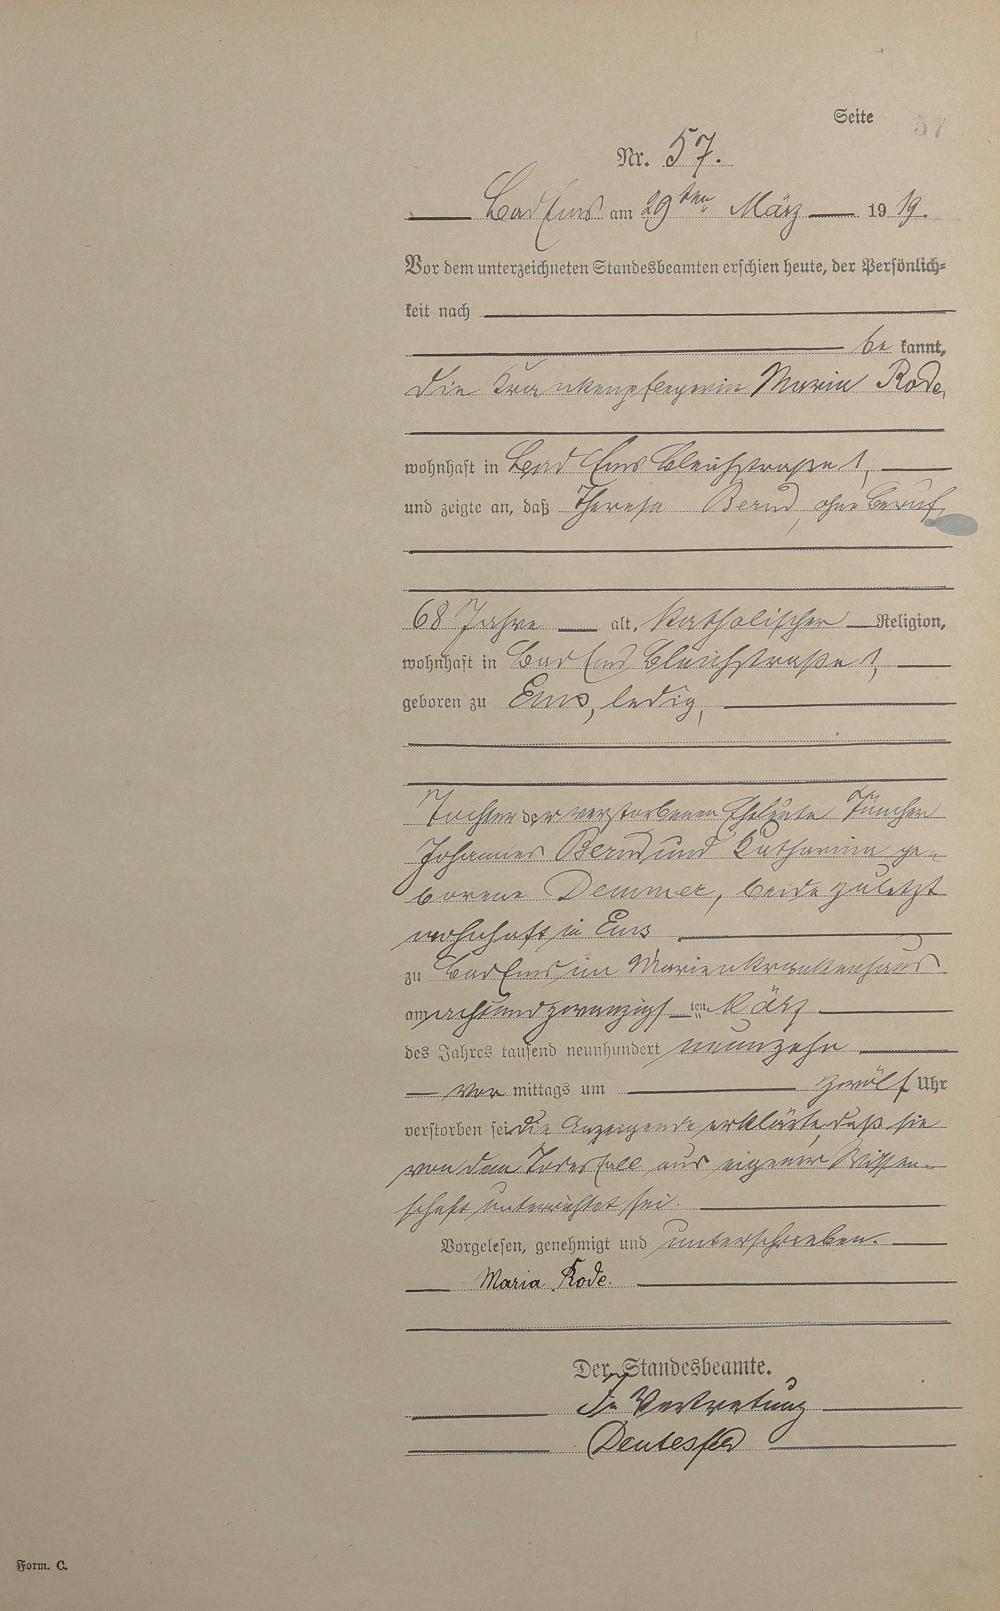 Seite 57
Nr. 57.
Bad Ems am 29ten März 19 19.
Vor dem unterzeichneten Standesbeamten erschien heute, der Persönlich=
keit nach
be kannt,
die Krankenpflegerin Maria Rode,
wohnhaft in Bad Ems Bleichstraße 1,
und zeigte an, daß Theresa Bernd, ohne Beruf,
68 Jahre alt, katholischer Religion,
wohnhaft in Bad Ems Bleichstraße 1,
geboren zu Ems, ledig,
Tochter der verstorbenen Eheleute Tüncher
Johannes Bernd und Katharina ge-
borene Demmer, beide zuletzt
wohnhaft in Ems
zu Bad Ems im Marienkrankenhaus
am achtundzwanzigsten März
des Jahres tausend neunhundert neunzehn
vor mittags um zwölf Uhr
verstorben sei. Die Anzeigende erklärte, daß sie
von dem Todesfall aus eigener Wissen-
schaft unterrichtet sei.
Vorgelesen, genehmigt und unterschrieben.
Maria Rode.
Der Standesbeamte.
In Vertretung
Form. C.